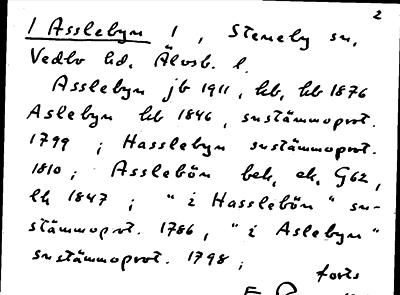 2
/ Asslebyn / , Steneby sn,
Vedbo hd, Älvsb. l.
Asslebyn jb 1911, hb, kb 1876
Aslebyn kb 1846, snstämmoprot.
1799 ; Hasslebyn snstämmoprot.
1810 ; Asslebön bek, ek. G62,
lk 1847 ; " i Hasslebön" sn-
stämmoprot. 1786, " i Aslebyn"
snstämmoprot. 1798 ;
forts